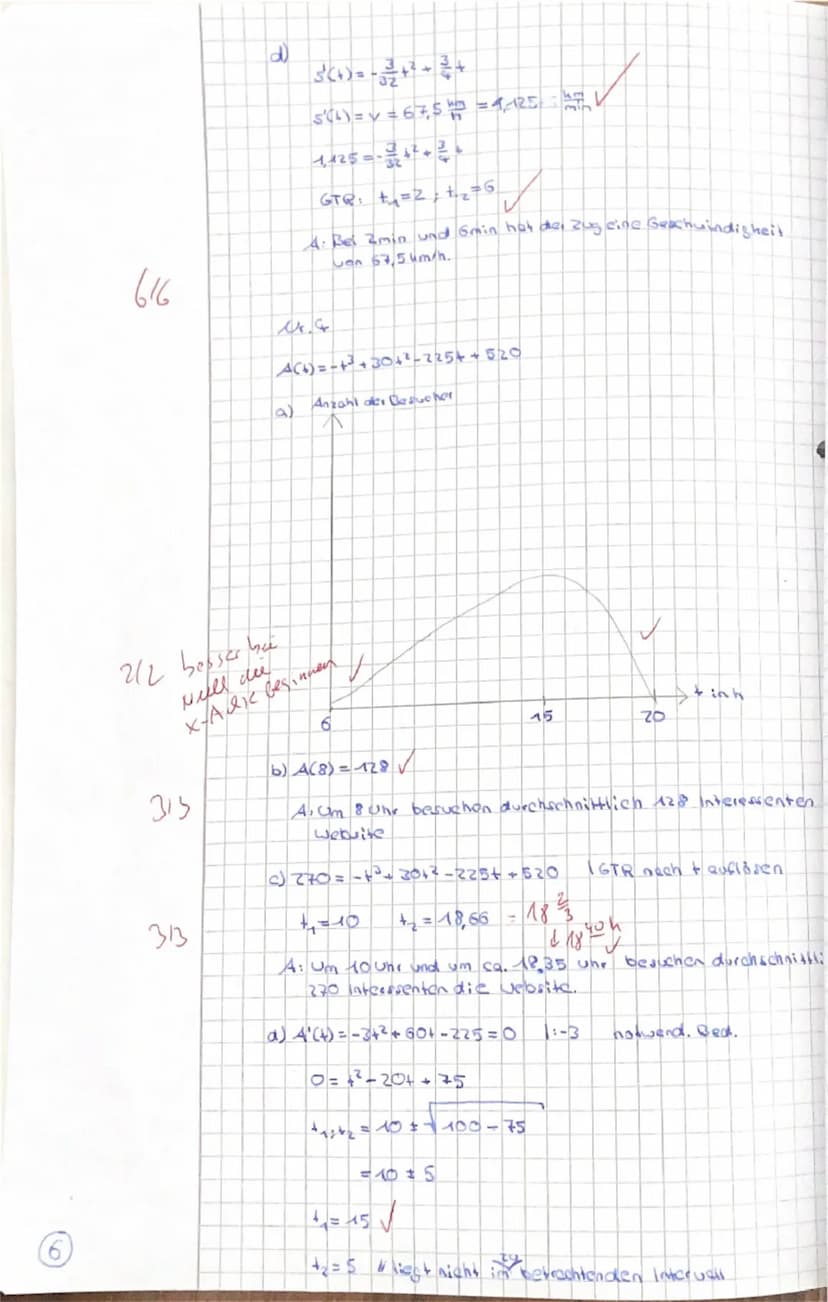 d)
s'(t) = -3/32 t² + 3/4 t
s'(t) = v = 67,5 km/h = 1,125 km/min ✓
1,125 = -3/32 t² + 3/4 t
GTR: t₁=2 ; t₂=6 ✓
A: Bei 2min und 6min hat der Zug eine Geschwindigkeit
von 67,5 km/h.
6/6
Nr. 4
A(t) = -t³ + 30t² - 225t + 520
a) Anzahl der Besucher
2/2 besser bei
Null die
x-Achse beginnen ✓
✓
t in h
6 15 20
b) A(8) = 128 ✓
3/3
A: Um 8 Uhr besuchen durchschnittlich 128 Interessenten
Website
c) 270 = -t³ + 30t² - 225t + 520 | GTR nach t auflösen
t₁ = 10 t₂ = 18,66 = 18 2/3
↓ 18 40 h ✓
3/3
A: Um 10 Uhr und um ca. 18,35 Uhr besuchen durchschnittli
270 Interessenten die Website.
d) A'(t) = -3t² + 60t - 225 = 0 |:-3 notwend. Bed.
0 = t² - 20t + 75
t₁;t₂ = 10 ± √100 - 75
= 10 ± 5
t₁ = 15 ✓
t₂ = 5 liegt nicht im zu betrachtenden Intervall
6